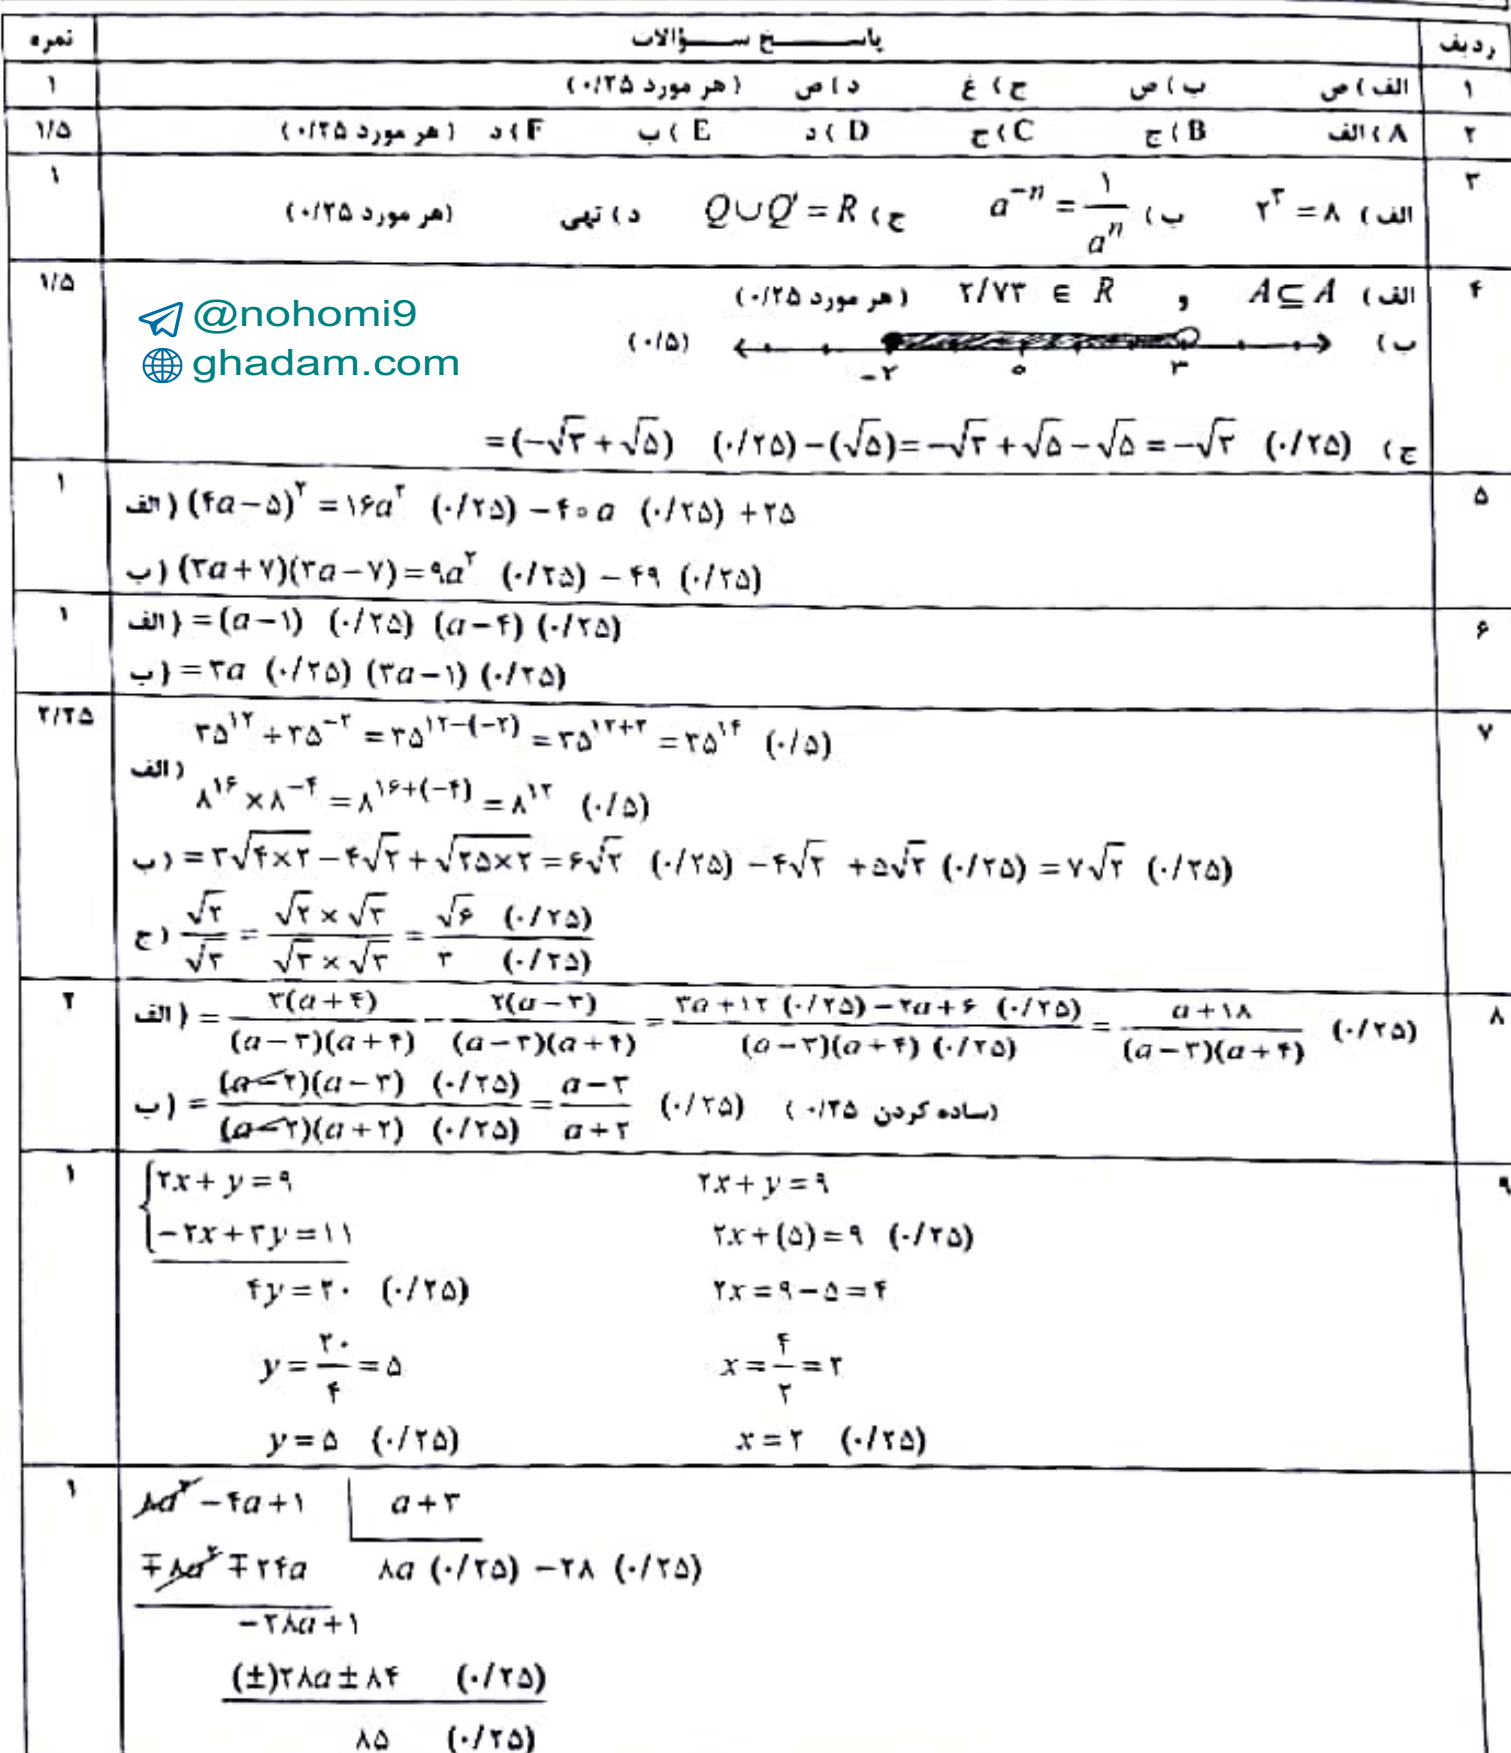 ردیف پاســـــخ ســـــؤالات نمره
۱ الف ) ص ب ) ص ج ) غ د ) ص ( هر مورد ۰/۲۵ ) ۱
۲ A ) الف B ) ج C ) ج D ) د E ) ب F ) د ( هر مورد ۰/۲۵ ) ۱/۵
۳ الف ) ۲^۳ = ۸ ب ) a^{-n} = ۱/a^n ج ) Q∪Q′ = R د ) تهی (هر مورد ۰/۲۵ ) ۱
۴ الف ) A ⊆ A و ۲/۷۳ ∈ R ( هر مورد ۰/۲۵ ) ۱/۵
@nohomi9
ب ) -۲ ۰ ۳ (۰/۵)
ghadam.com
ج ) =(-√۳+√۵) (۰/۲۵)-(√۵)=-√۳+√۵-√۵=-√۳ (۰/۲۵)
۵ الف ) (۴a-۵)^۲ = ۱۶a^۲ (۰/۲۵) -۴۰a (۰/۲۵) +۲۵ ۱
ب ) (۳a+۷)(۳a-۷)=۹a^۲ (۰/۲۵) -۴۹ (۰/۲۵)
۶ الف ) =(a-۱) (۰/۲۵) (a-۴) (۰/۲۵) ۱
ب ) =۳a (۰/۲۵) (۳a-۱) (۰/۲۵)
۷ ۳۵^{۱۲}÷۳۵^{-۲} = ۳۵^{۱۲-(-۲)} = ۳۵^{۱۲+۲} = ۳۵^{۱۴} (۰/۵) ۲/۲۵
الف ) ۸^{۱۶}×۸^{-۴} = ۸^{۱۶+(-۴)} = ۸^{۱۲} (۰/۵)
ب ) =۳√(۴×۲)-۴√۲+√(۲۵×۲)=۶√۲ (۰/۲۵) -۴√۲ +۵√۲ (۰/۲۵) =۷√۲ (۰/۲۵)
ج ) √۲/√۳ = (√۲×√۳)/(√۳×√۳) = √۶ (۰/۲۵)/۳ (۰/۲۵)
۸ الف ) = ۳(a+۴)/((a-۳)(a+۴)) - ۲(a-۳)/((a-۳)(a+۴)) = (۳a+۱۲ (۰/۲۵) -۲a+۶ (۰/۲۵))/((a-۳)(a+۴) (۰/۲۵)) = (a+۱۸)/((a-۳)(a+۴)) (۰/۲۵) ۲
ب ) = ((a-۲)(a-۳) (۰/۲۵))/((a-۲)(a+۲) (۰/۲۵)) = (a-۳)/(a+۲) (۰/۲۵) (ساده کردن ۰/۲۵ )
۹ ۲x+y=۹ ۲x+y=۹ ۱
-۲x+۳y=۱۱ ۲x+(۵)=۹ (۰/۲۵)
۴y=۲۰ (۰/۲۵) ۲x=۹-۵=۴
y=۲۰/۴=۵ x=۴/۲=۲
y=۵ (۰/۲۵) x=۲ (۰/۲۵)
۸a^۲-۴a+۱ a+۳ ۱
∓۸a^۲∓۲۴a ۸a (۰/۲۵) -۲۸ (۰/۲۵)
-۲۸a+۱
(±)۲۸a±۸۴ (۰/۲۵)
۸۵ (۰/۲۵)